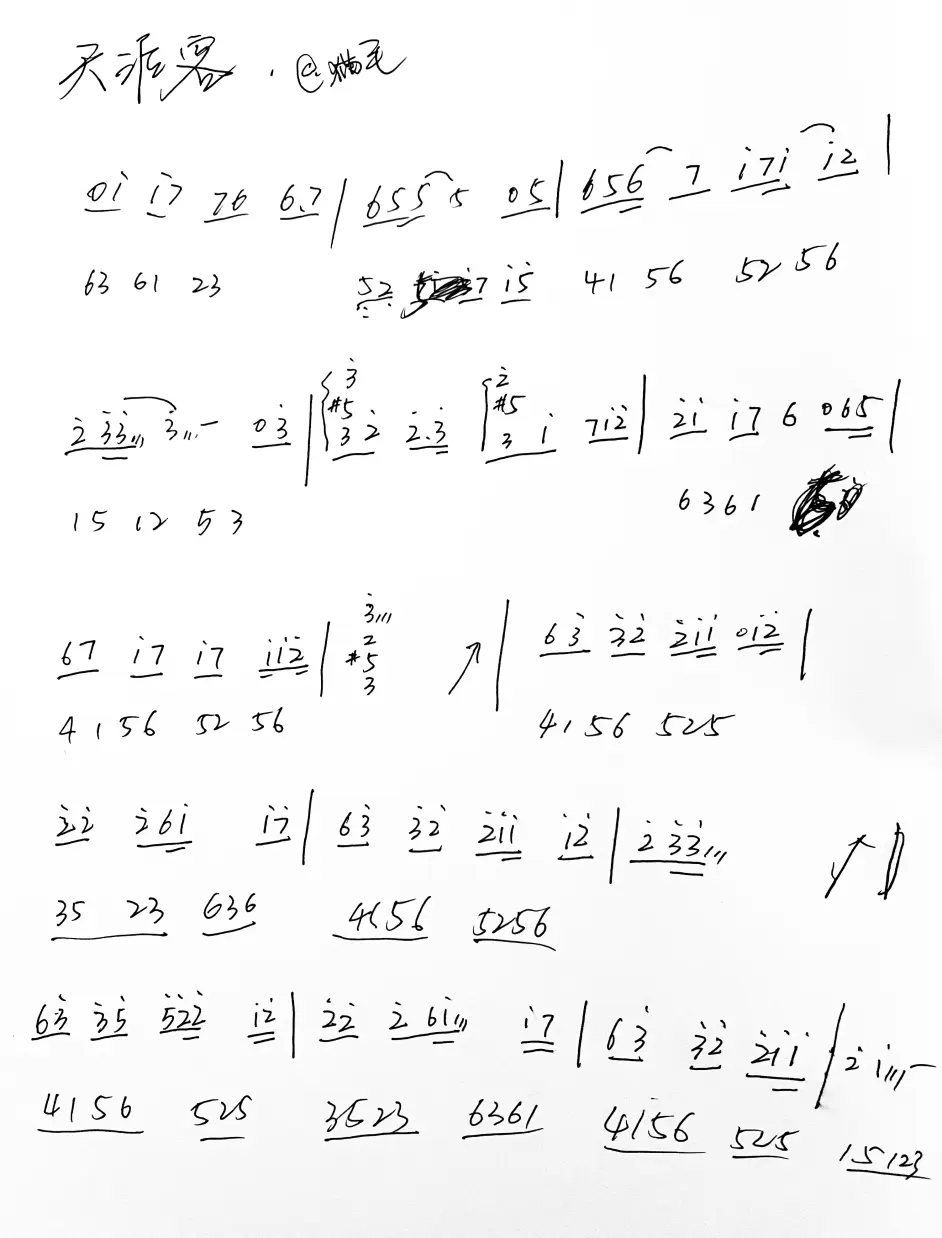 天乖客 · @猫毛
0i̇ i̇7 76 6.7 | 655 5 05 | 656 7 i̇7i̇ i̇2 |
63 61 23 52 7 i̇5̇ 41 56 52 56
2̇3̇3̇,,, 3̇,,,— 03̇ | 3̇ #5 32̇ 2̇.3̇ 2̇ #5 3 i̇ 7i̇2̇ | 2̇i̇ i̇7 6 065 |
15 12 53 6361
67 i̇7 i̇7 i̇i̇2̇ | 3̇,,, 2 #5 3 ↗ | 63̇ 3̇2̇ 2̇i̇i̇ 0i̇2̇ |
4156 52 56 4156 525
2̇2̇ 2̇6i̇ i̇7 | 63̇ 3̇2̇ 2̇i̇i̇ i̇2̇ | 2̇3̇3̇,,,
35 23 636 4156 5256
63̇ 3̇5̇ 5̇2̇2̇ i̇2̇ | 2̇2̇ 2̇6i̇,,, i̇7 | 63̇ 3̇2̇ 2̇i̇i̇ | 2̇i̇,,,—
4156 525 3523 6361 4156 525 15123